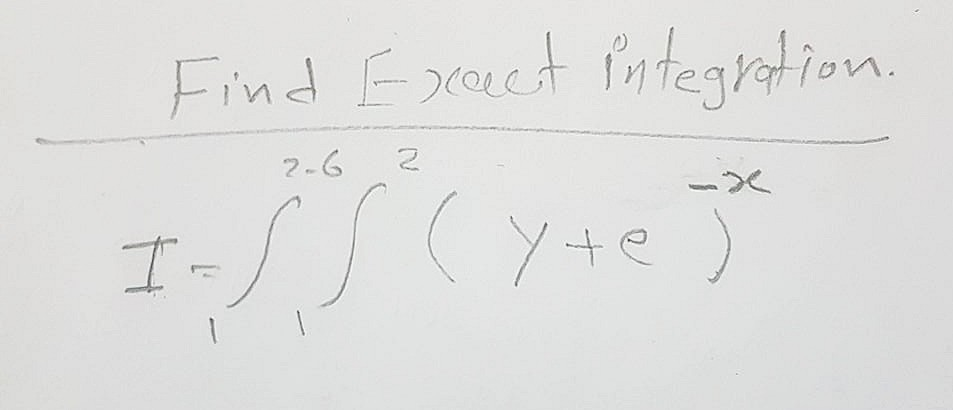 Find Exact integration.
I = ∫₁^2.6 ∫₁^2 (y+e)^-x